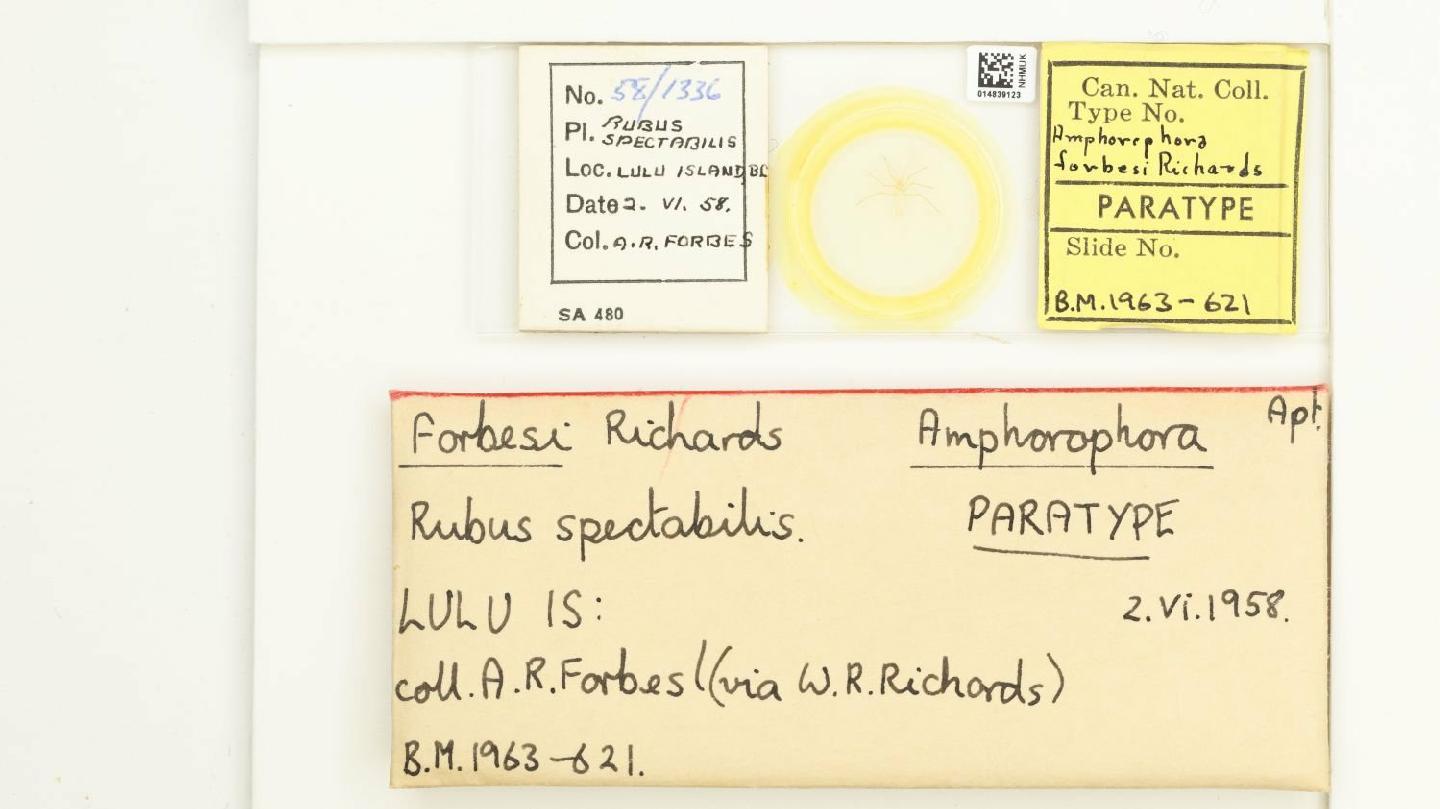 No. 58/1336
Pl. RUBUS
SPECTABILIS
Loc. LULU ISLAND, BC
Date 2. VI. 58.
Col. A.R. FORBES
SA 480
NHMUK
014839123
Can. Nat. Coll.
Type No.
Amphorophora
forbesi Richards
PARATYPE
Slide No.
B.M.1963-621
Forbesi Richards Amphorophora Apt.
Rubus spectabilis. PARATYPE
LULU IS: 2.Vi.1958.
coll. A.R. Forbes (via W.R. Richards)
B.M.1963-621.